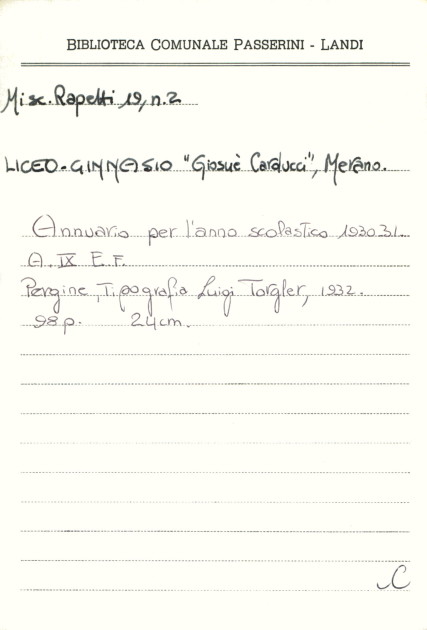 BIBLIOTECA COMUNALE PASSERINI - LANDI
Misc. Rapetti 19, n. 2
LICEO-GINNASIO "Giosuè Carducci", Merano.
Annuario per l'anno scolastico 1930.31.
A. IX E.F.
Pergine, Tipografia Luigi Torgler, 1932.
98 p. 24 cm.
C